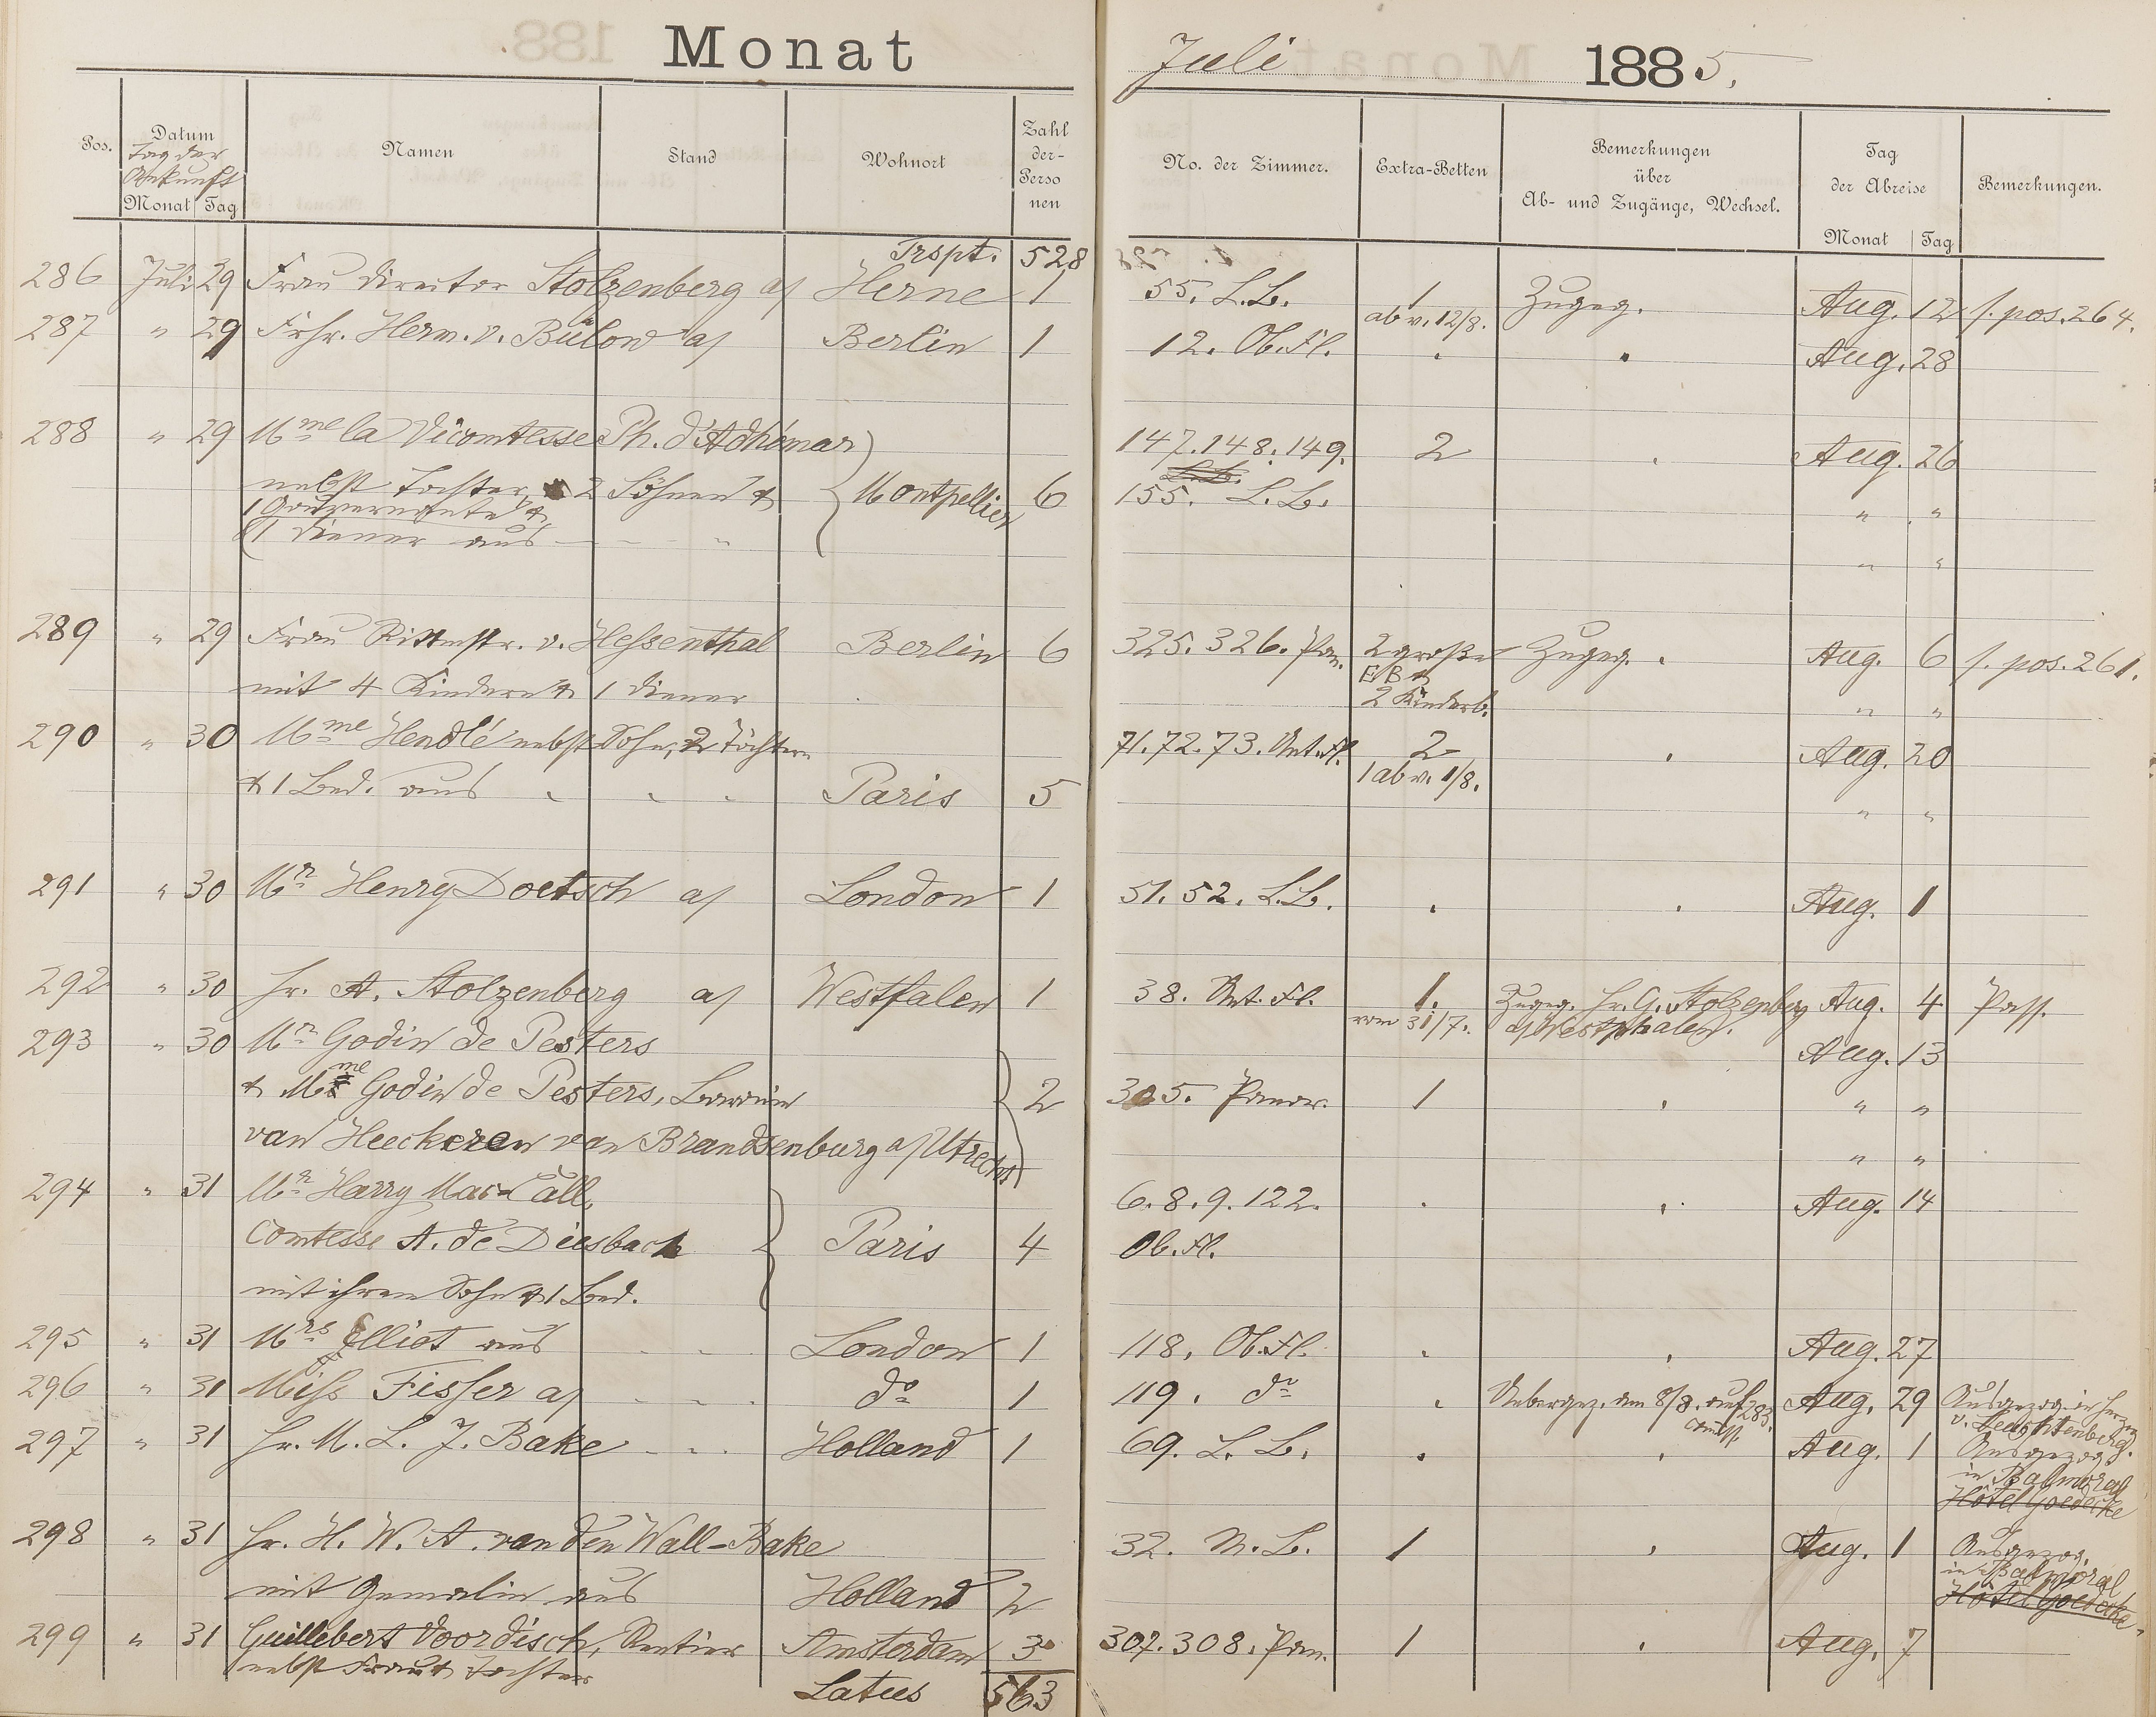 Monat
Juli 1885.
Pos. Datum Namen Stand Wohnort Zahl der-Perso nen No. der Zimmer. Extra-Betten Bemerkungen über Ab- und Zugänge, Wechsel. Tag der Abreise Bemerkungen.
Tag der Ankunft
Monat Tag Monat Tag
Trspt. 528
286 Juli 29 Frau Director Stolzenberg a/ Herne 1 55. L.B. 1 ab v. 12/8. Zugeg. Aug. 12 s. pos. 264.
287 " 29 Frhr. Herm. v. Bülow a/ Berlin 1 12. Ob. Fl. Aug. 28
288 " 29 Mme la Vicomtesse Ph. d'Adhémar 147. 148. 149. 2 Aug. 26
nebst Tochter, 2 Söhnen & Montpellier 6 155. L.B. " "
1 Gouvernante &
1 Diener aus " "
289 " 29 Frau Rittmstr. v. Hessenthal Berlin 6 325. 326. Pan. 2 große E/B & Zugeg. Aug. 6 s. pos. 261.
mit 4 Kindern & 1 Diener 2 Kinderb. " "
290 " 30 Mme Hendlé nebst Sohn, 2 Töchtern 71. 72. 73. Unt. Fl. 2 Aug. 20
& 1 Bed. aus Paris 5 1 ab v. 1/8. " "
291 " 30 Mr Henry Doetsch a/ London 1 51. 52. L.B. Aug. 1
292 " 30 Hr. A. Stolzenberg a/ Westfalen 1 38. Unt. Fl. 1. vom 31/7. Zugeg. Hr. G. Stolzenberg a/ Westphalen. Aug. 4 Pass.
293 " 30 Mr Godin de Pesters Aug. 13
& Mme Godin de Pesters, Baronin 2 305. Panor. 1 " "
van Heeckeren van Brandsenburg a/ Utrecht " "
294 " 31 Mr Harry Mac-Call, 6. 8. 9. 122. Aug. 14
Comtesse A. de Diesbach Paris 4 Ob. Fl.
mit ihrem Sohn & 1 Bed.
295 " 31 Mrs Elliot aus London 1 118. Ob. Fl. Aug. 27
296 " 31 Miss Fisser a/ do 1 119. do Uebergez. am 8/8. auf 283. Aug. 29 Ausgezog. in Herzog v. Leuchtenberg.
297 " 31 Hr. M. L. J. Bake Holland 1 69. L. B. Aug. 1 Ausgezog. in Balmoral Hôtel Goedecke
298 " 31 Hr. H. W. A. van den Wall-Bake 32. M. B. 1 Aug. 1 Ausgezog. in Balmoral Hôtel Goedecke
mit Gemalin aus Holland 2
299 " 31 Guillebert Voordisch, Rentier Amsterdam 3 307. 308. Pan. 1 Aug. 7
nebst Frau & Tochter
Latus 563